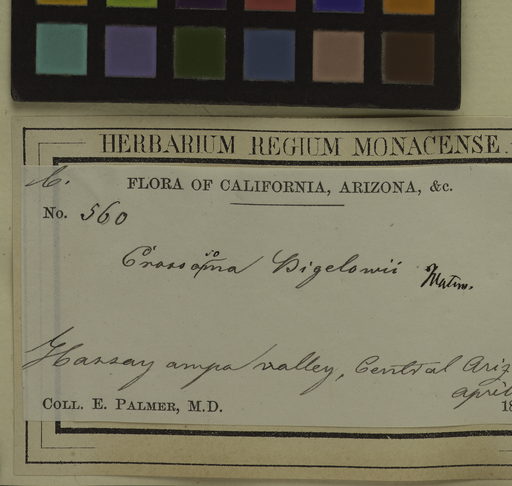 HERBARIUM REGIUM MONACENSE.
C.
FLORA OF CALIFORNIA, ARIZONA, &c.
No. 560
Crossosoma Bigelowii Watson.
Hassayampa valley, Central Ariz
april
COLL. E. PALMER, M.D. 18